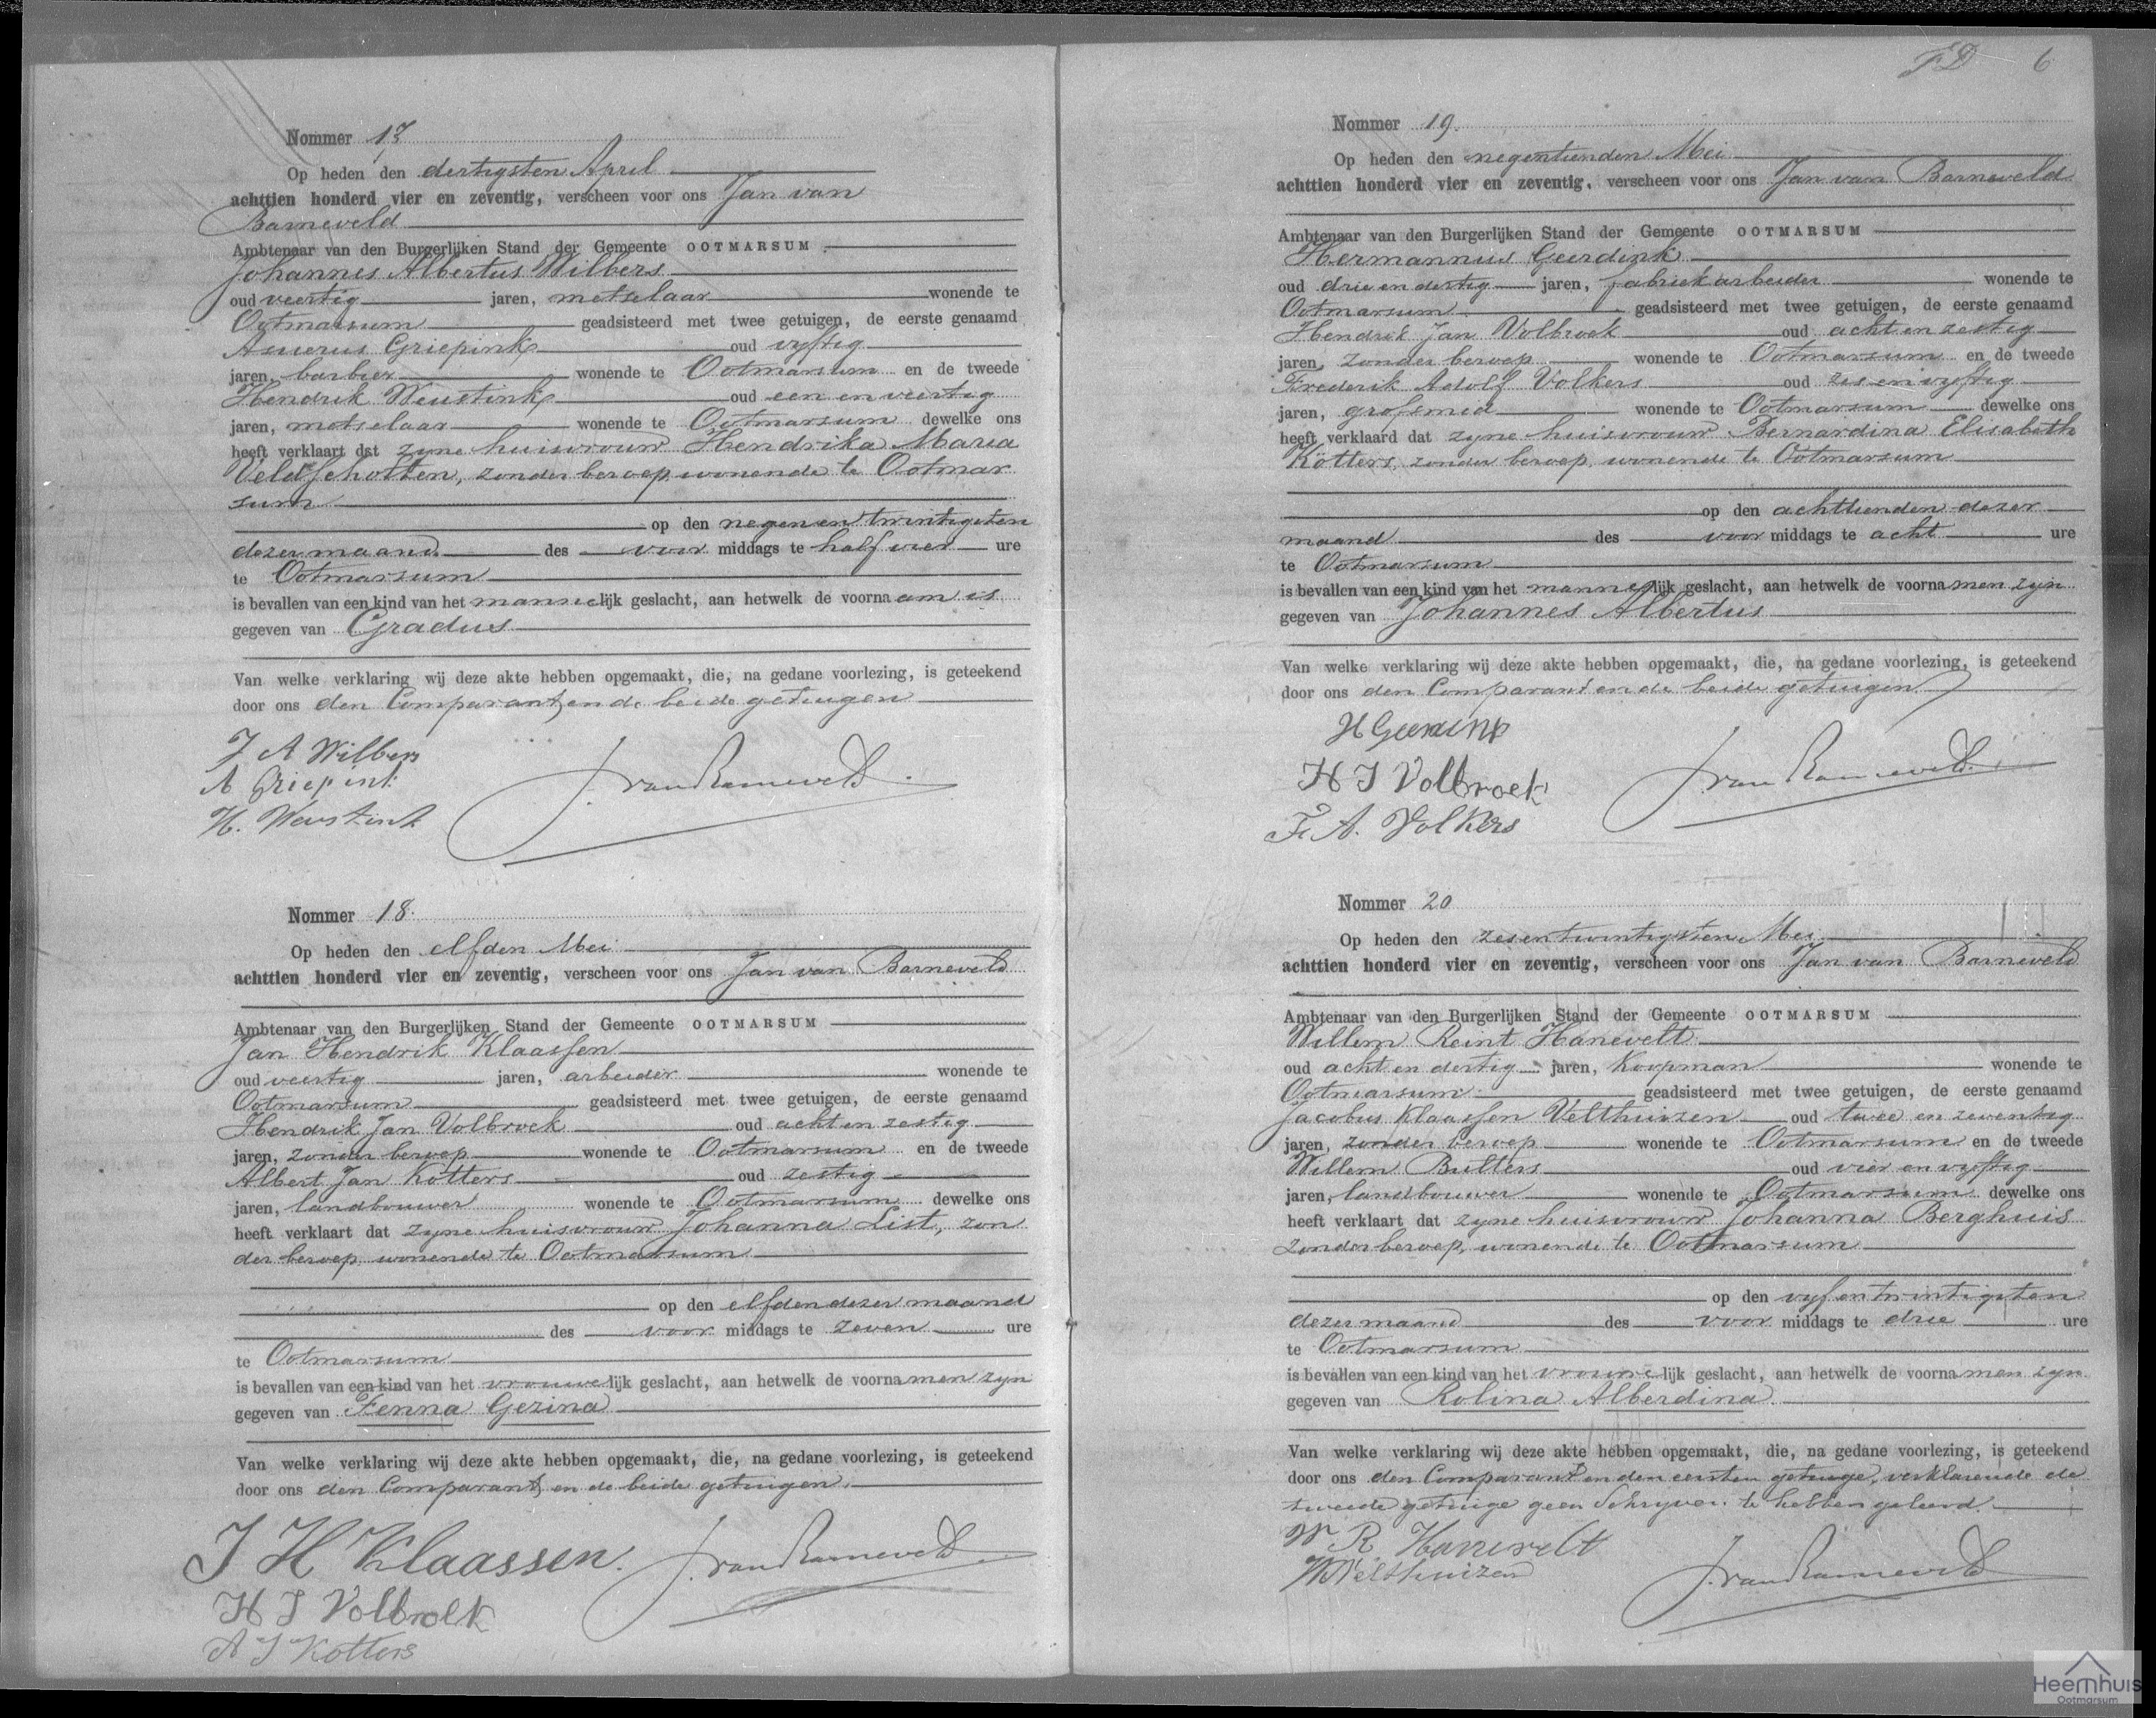 Nommer 17
Op heden den dertigsten April
achttien honderd vier en zeventig, verscheen voor ons Jan van
Barneveld
Ambtenaar van den Burgerlijken Stand der Gemeente OOTMARSUM
Johannes Albertus Wilbers
oud veertig jaren, metselaar wonende te
Ootmarsum geadsisteerd met twee getuigen, de eerste genaamd
Assuerus Griepink oud vyftig
jaren, barbier wonende te Ootmarsum en de tweede
Hendrik Weustink oud een en veertig
jaren, metselaar wonende te Ootmarsum dewelke ons
heeft verklaart dat zyne huisvrouw Hendrika Maria
Veldscholten, zonder beroep, wonende te Ootmar
sum
op den negen en twintigsten
dezer maand des voor middags te half vier ure
te Ootmarsum
is bevallen van een kind van het mannelijk geslacht, aan hetwelk de voornaam is
gegeven van Gradus
Van welke verklaring wij deze akte hebben opgemaakt, die, na gedane voorlezing, is geteekend
door ons den Comparant, en de beide getuigen
J A Wilbers
A Griepink
H. Weustink
J. van Barneveld
Nommer 18.
Op heden den elfden Mei
achttien honderd vier en zeventig, verscheen voor ons Jan van Barneveld
Ambtenaar van den Burgerlijken Stand der Gemeente OOTMARSUM
Jan Hendrik Klaassen
oud veertig jaren, arbeider wonende te
Ootmarsum geadsisteerd met twee getuigen, de eerste genaamd
Hendrik Jan Volbroek oud acht en zestig
jaren, zonder beroep wonende te Ootmarsum en de tweede
Albert Jan Kotters oud zestig
jaren, landbouwer wonende te Ootmarsum dewelke ons
heeft verklaart dat zyne huisvrouw Johanna List, zon
der beroep, wonende te Ootmarsum
op den elfden dezer maand
des voor middags te zeven ure
te Ootmarsum
is bevallen van een kind van het vrouwelijk geslacht, aan hetwelk de voornamen zyn
gegeven van Fenna Gezina
Van welke verklaring wij deze akte hebben opgemaakt, die, na gedane voorlezing, is geteekend
door ons den Comparant, en de beide getuigen.
J H Klaassen.
H J Volbroek
A J Kotters
J. van Barneveld
FD 6
Nommer 19.
Op heden den negentienden Mei
achttien honderd vier en zeventig, verscheen voor ons Jan van Barneveld
Ambtenaar van den Burgerlijken Stand der Gemeente OOTMARSUM
Hermannus Geerdink
oud drie en dertig jaren, fabriekarbeider wonende te
Ootmarsum geadsisteerd met twee getuigen, de eerste genaamd
Hendrik Jan Volbroek oud acht en zestig
jaren, zonder beroep wonende te Ootmarsum en de tweede
Frederik Adolf Volkers oud zes en vyftig
jaren, grofsmid wonende te Ootmarsum dewelke ons
heeft verklaard dat zyne huisvrouw Bernardina Elisabeth
Kötters, zonder beroep, wonende te Ootmarsum
op den achttienden dezer
maand des voor middags te acht ure
te Ootmarsum
is bevallen van een kind van het mannelijk geslacht, aan hetwelk de voornamen zyn
gegeven van Johannes Albertus
Van welke verklaring wij deze akte hebben opgemaakt, die, na gedane voorlezing, is geteekend
door ons den Comparant en de beide getuigen
H Geerdink
H J Volbroek
F. A. Volkers
J. van Barneveld
Nommer 20
Op heden den zesentwintigsten Mei
achttien honderd vier en zeventig, verscheen voor ons Jan van Barneveld
Ambtenaar van den Burgerlijken Stand der Gemeente OOTMARSUM
Willem Reint Hanevelt
oud acht en dertig jaren, Koopman wonende te
Ootmarsum geadsisteerd met twee getuigen, de eerste genaamd
Jacobus Klaassen Velthuizen oud twee en zeventig
jaren, zonder beroep wonende te Ootmarsum en de tweede
Willem Bulters oud vier en vyftig
jaren, landbouwer wonende te Ootmarsum dewelke ons
heeft verklaart dat zyne huisvrouw Johanna Berghuis
zonder beroep, wonende te Ootmarsum
op den vyf en twintigsten
dezer maand des voor middags te drie ure
te Ootmarsum
is bevallen van een kind van het vrouwelijk geslacht, aan hetwelk de voornamen zyn
gegeven van Rolina Alberdina
Van welke verklaring wij deze akte hebben opgemaakt, die, na gedane voorlezing, is geteekend
door ons den Comparant en den eersten getuige, verklarende de
tweede getuige geen Schryven te hebben geleerd.
W R Hanevelt
Velthuizen
J. van Barneveld
Heemhuis
Ootmarsum